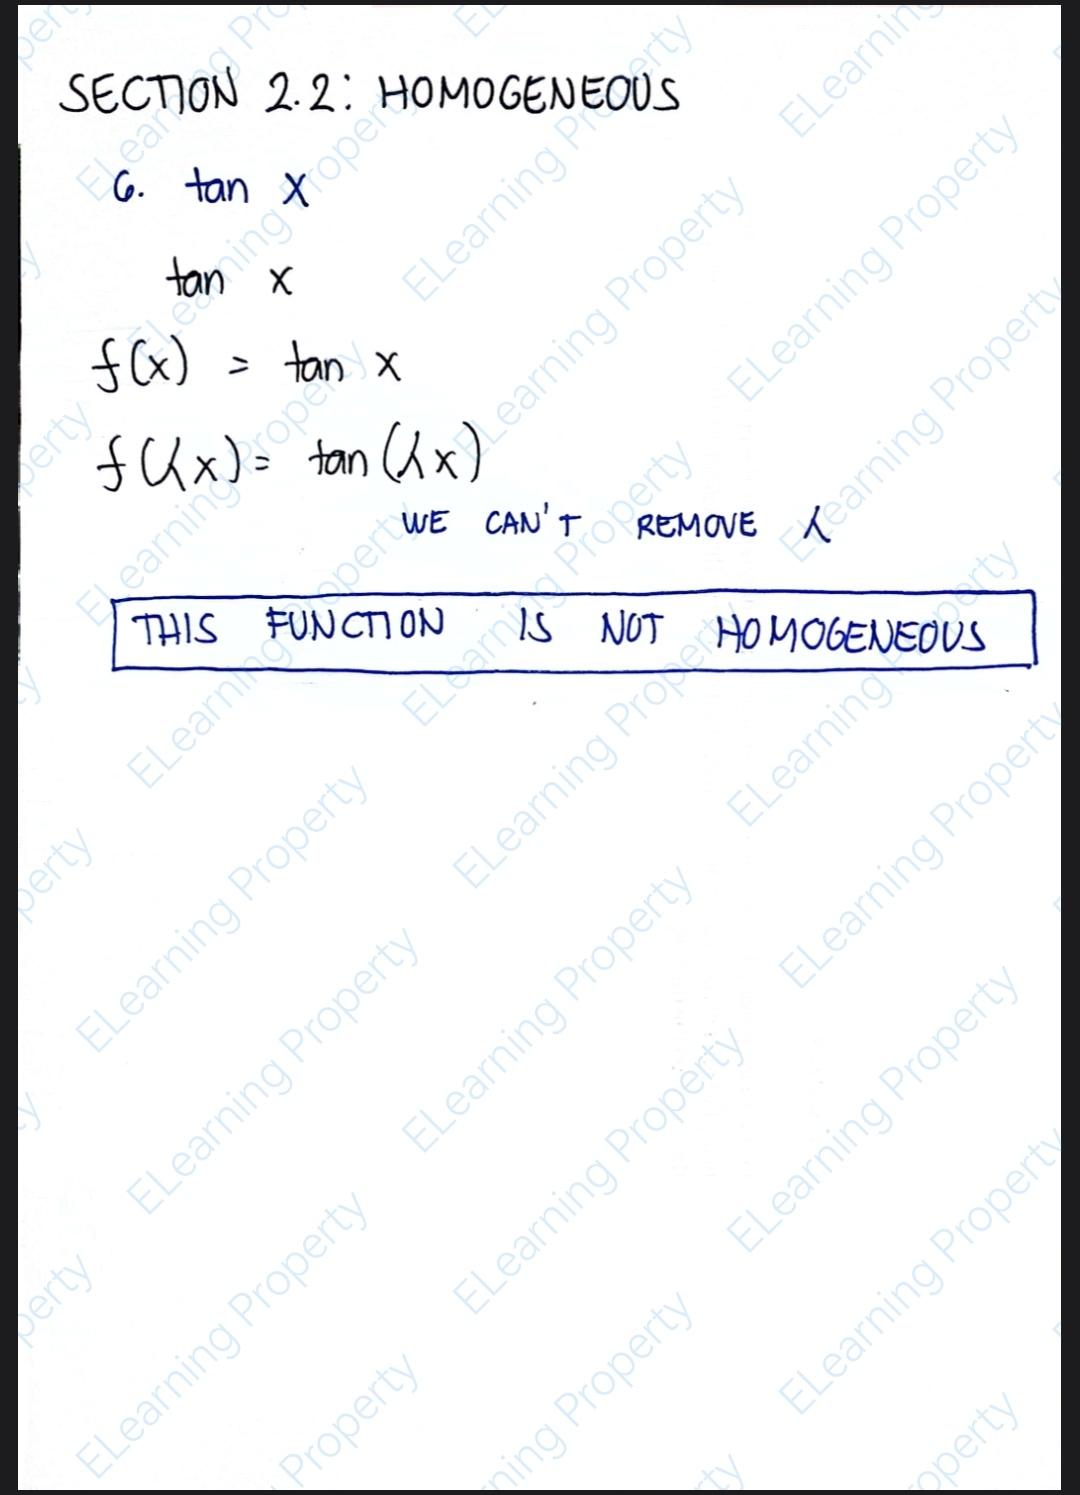 SECTION 2.2: HOMOGENEOUS
6. tan x
tan x
f(x) = tan x
f(λx) = tan(λx)
WE CAN'T REMOVE λ
THIS FUNCTION IS NOT HOMOGENEOUS
ELearning Property